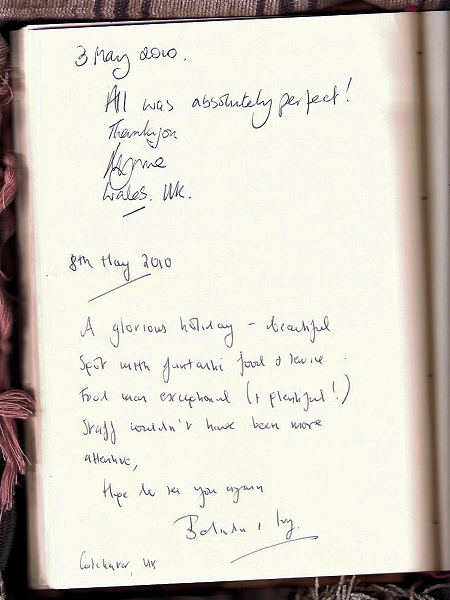 3 May 2010.
All was absolutely perfect!
Thankyou
Wales. UK.
8th May 2010
A glorious holiday - beautiful
Spot with fantastic food & service.
Food was exceptional (+ plentiful!)
Staff couldn't have been more
attentive,
Hope to see you again
Colchester, UK